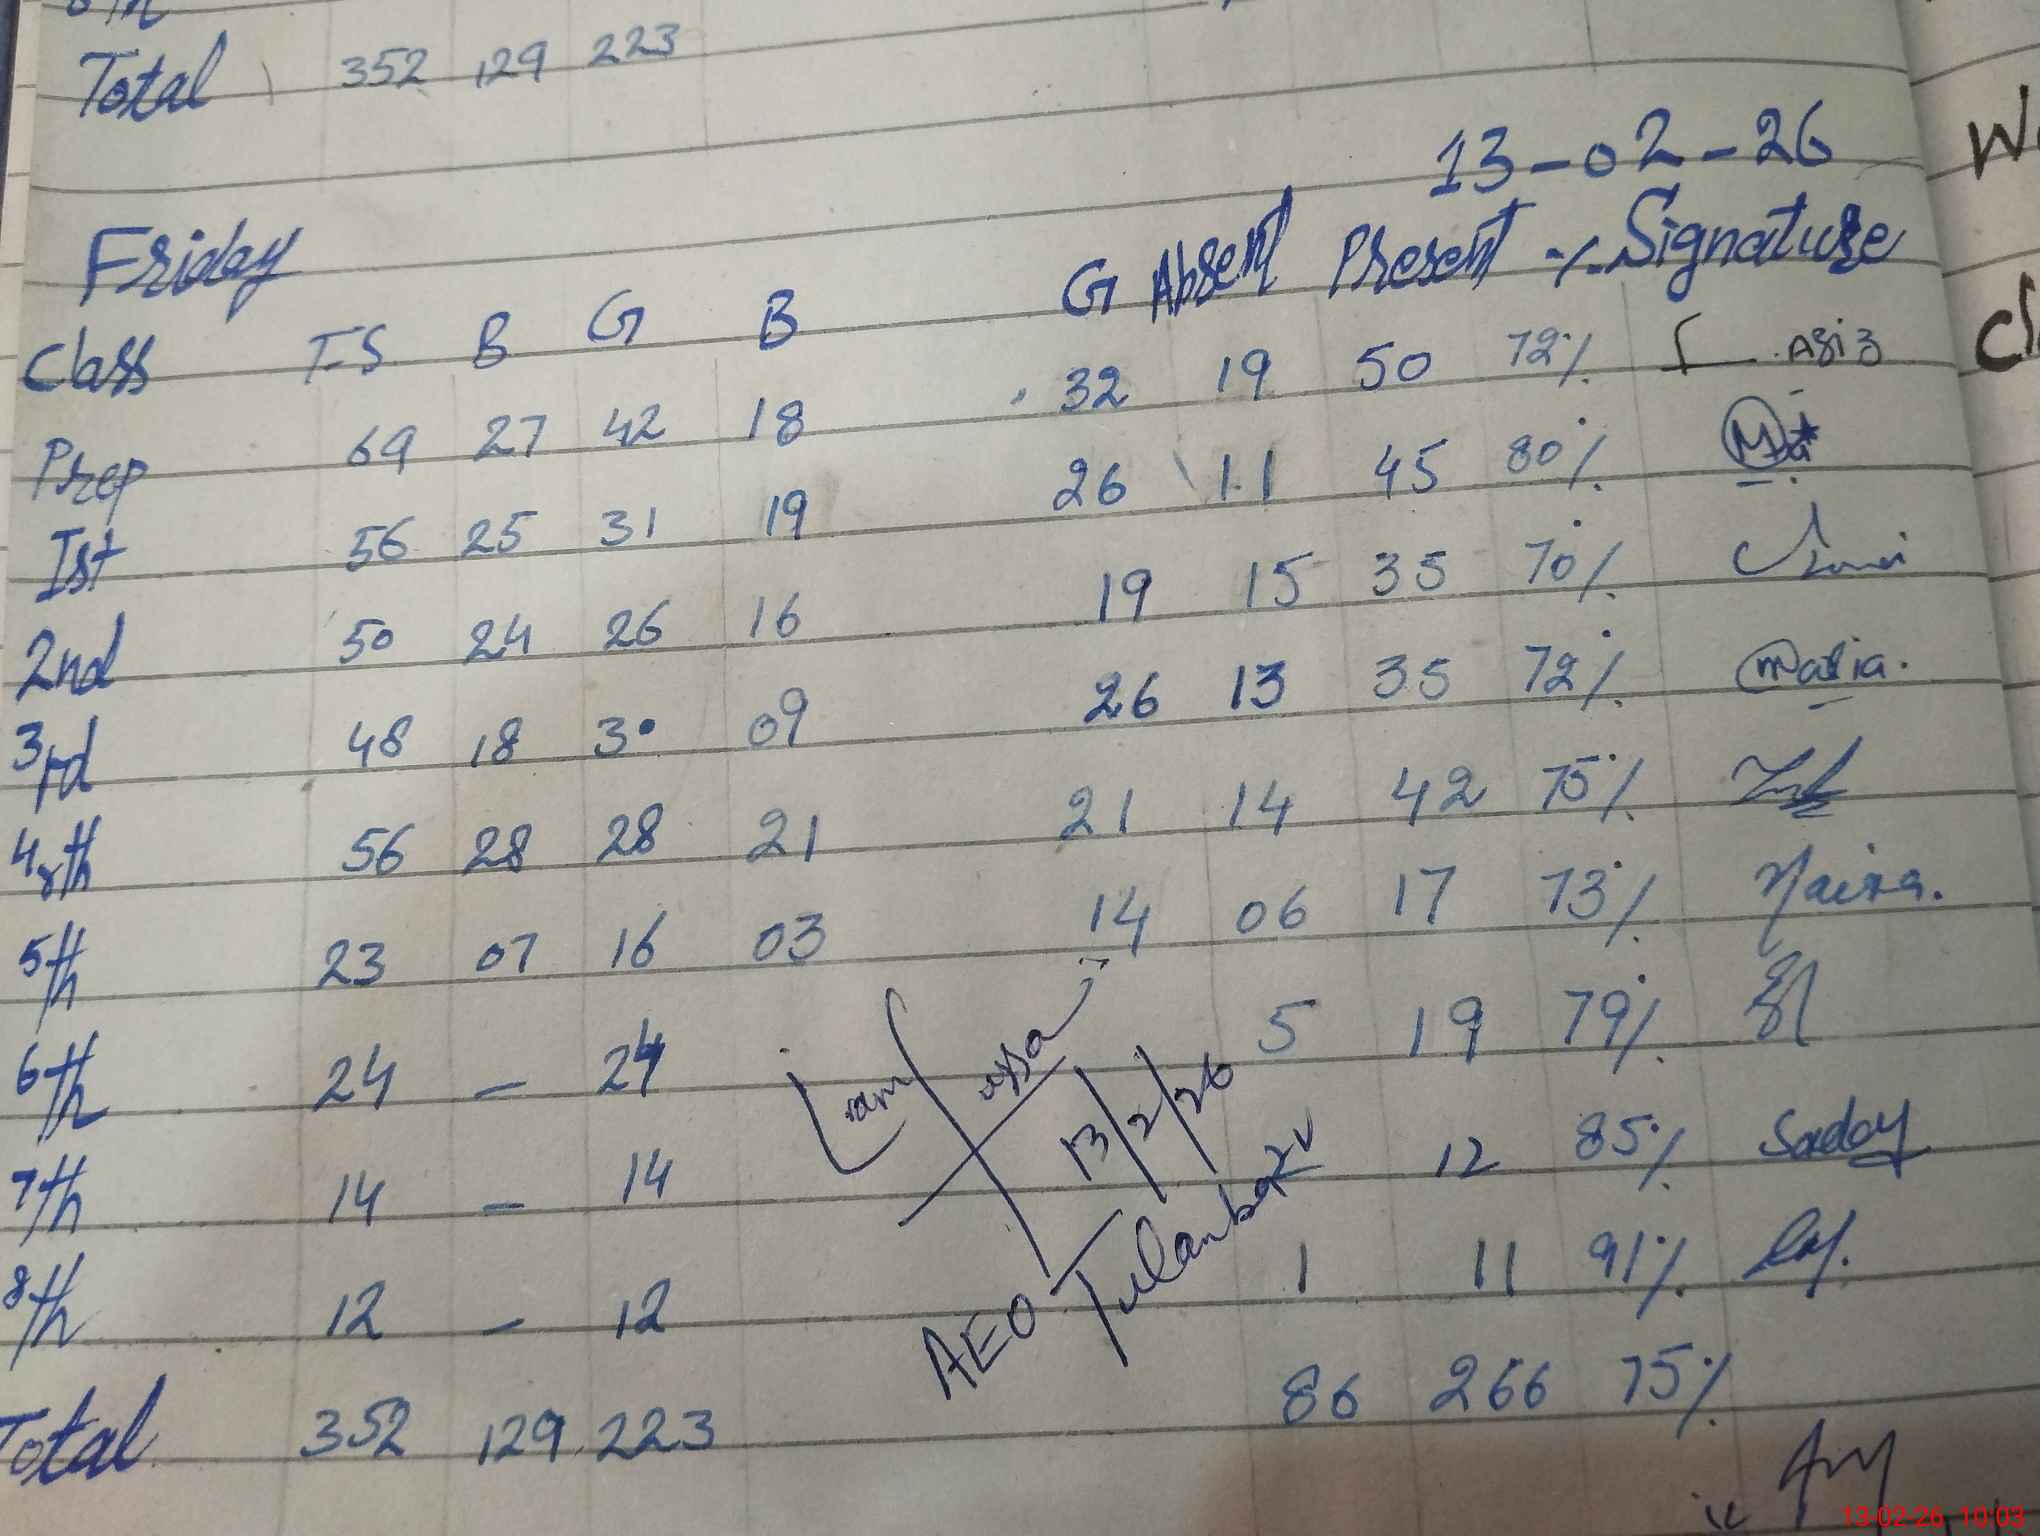 Total 352 129 223
13-02-26
Friday
Class T-S B G B G Absent Present % Signature
Prep 69 27 42 18 32 19 50 72% Asia
Ist 56 25 31 19 26 11 45 80%
2nd 50 24 26 16 19 15 35 70%
3rd 48 18 30 09 26 13 35 72% Maria.
4rth 56 28 28 21 21 14 42 75%
5th 23 07 16 03 14 06 17 73%
6th 24 - 24 5 19 79%
7th 14 - 14 12 85% Saday
8th 12 - 12 1 11 91%
13/2/26
AEO Tulamba
Total 352 129 223 86 266 75%
13-02-26 10:03